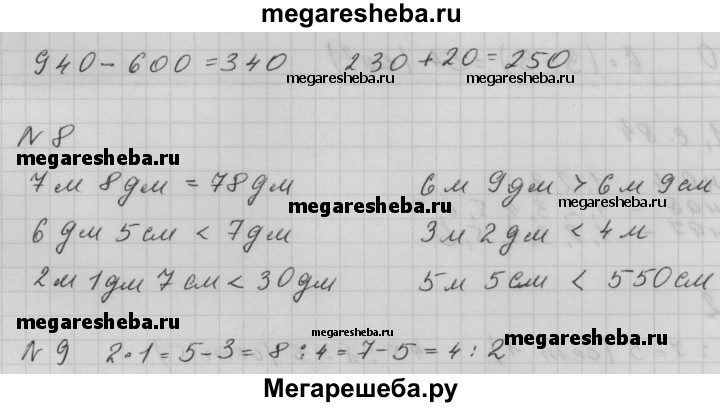 megaresheba.ru
940 - 600 = 340 230 + 20 = 250
megaresheba.ru megaresheba.ru
N 8
megaresheba.ru
7 м 8 дм = 78 дм 6 м 9 дм > 6 м 9 см
megaresheba.ru megaresheba.ru
6 дм 5 см < 7 дм 3 м 2 дм < 4 м
2 м 1 дм 7 см < 30 дм 5 м 5 см < 550 см
megaresheba.ru megaresheba.ru megaresheba.ru
N 9 2 · 1 = 5 - 3 = 8 : 4 = 7 - 5 = 4 : 2
Мегарешеба.ру